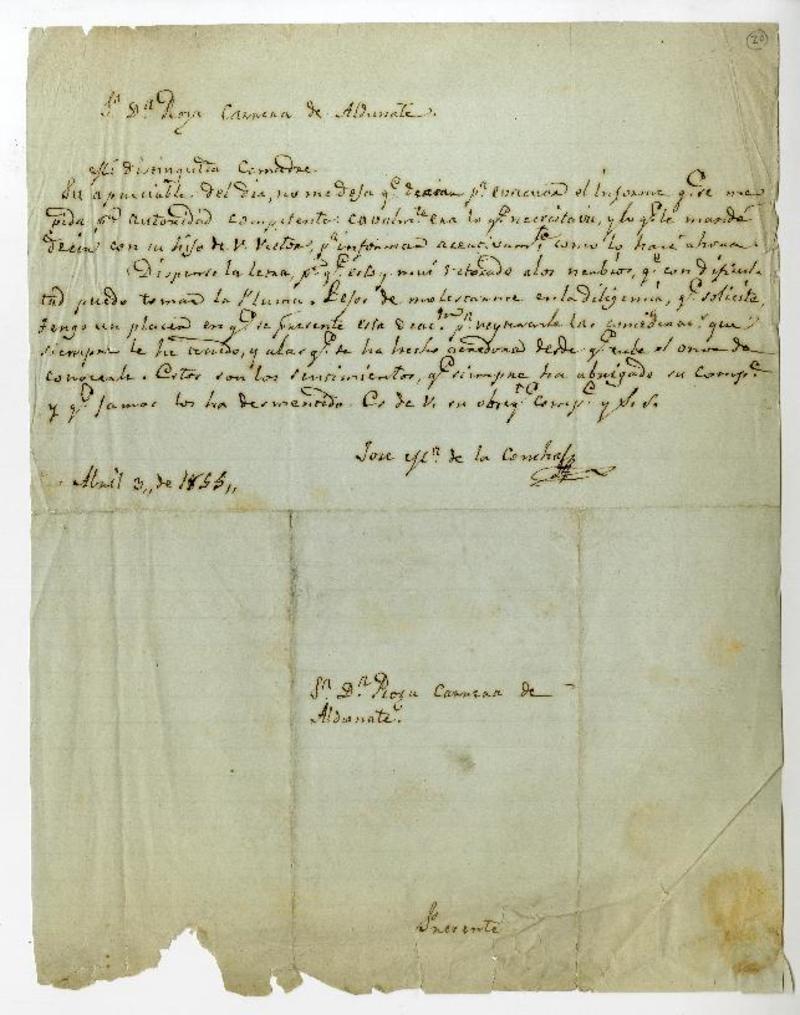 20
Sra. Da. Rosa Carrera de Aldunate.
Mi distinguida Comadre.
Su apreciable del dia, no me deja qe. desear pa. evacuar el informe qe. se me
pida pr. autoridad competente: cavalmte. era lo qe. necesitava, y lo qe. le mandé
decir con su hijo de V. Victor, pa. informar como lo haré ahora.
Dispense la letra, pr. qe. estoy mui atacado a los nerbios, qe. con dificul-
tad puedo tomar la Pluma. Lejos de molestarme en la diligencia, qe. solicita,
tengo un placer en qe. se presente esta pa. las qe.
siempre le he tenido, y a las qe. se ha hecho desde qe. tube el onor de
conocerle. Estos son los sentimientos, qe. siempre ha abrigado su compe.
y qe. jamas los ha desmentido. Es de V. su obligdo. compe. y S. S.
Jose Ma. de la Concha
Abril 3,, de 1855,,
Sra. Da. Rosa Carrera de
Aldunate.
Presente